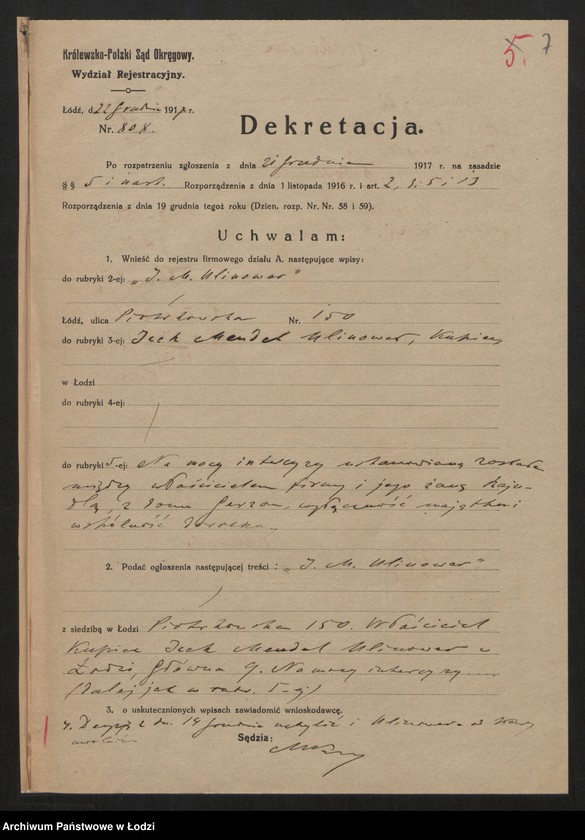 5. 7
Królewsko-Polski Sąd Okręgowy.
Wydział Rejestracyjny.
Łódź, d. 22 Grudnia 1917 r.
Nr. 808.
Dekretacja.
Po rozpatrzeniu zgłoszenia z dnia 21 grudnia 1917 r. na zasadzie
§ § 5 i nast. Rozporządzenia z dnia 1 listopada 1916 r. i art. 2, 3, 5 i 13
Rozporządzenia z dnia 19 grudnia tegoż roku (Dzien. rozp. Nr. Nr. 58 i 59).
Uchwalam:
1. Wnieść do rejestru firmowego działu A. następujące wpisy:
do rubryki 2-ej: „J. M. Ulinower"
Łódź, ulica Piotrkowska Nr. 150
do rubryki 3-ej: Icek Mendel Ulinower, Kupiec
w Łodzi
do rubryki 4-ej:
do rubryki 5-ej: Na mocy intercyzy ustanowioną została
między właścicielem firmy i jego żoną
z domu Gerzon, wyłączność majątku i
wspólność dorobku.
2. Podać ogłoszenia następującej treści: „J. M. Ulinower"
z siedzibą w Łodzi Piotrkowska 150. Właściciel
Kupiec Icek Mendel Ulinower w
Łodzi, Główna 9. Na mocy intercyzy
(dalej jak w rubr. 5-ej)
3. o uskutecznionych wpisach zawiadomić wnioskodawcę.
4. z dn. 14 Grudnia uchylić i Ulinowera od kary
Sędzia:
Archiwum Państwowe w Łodzi